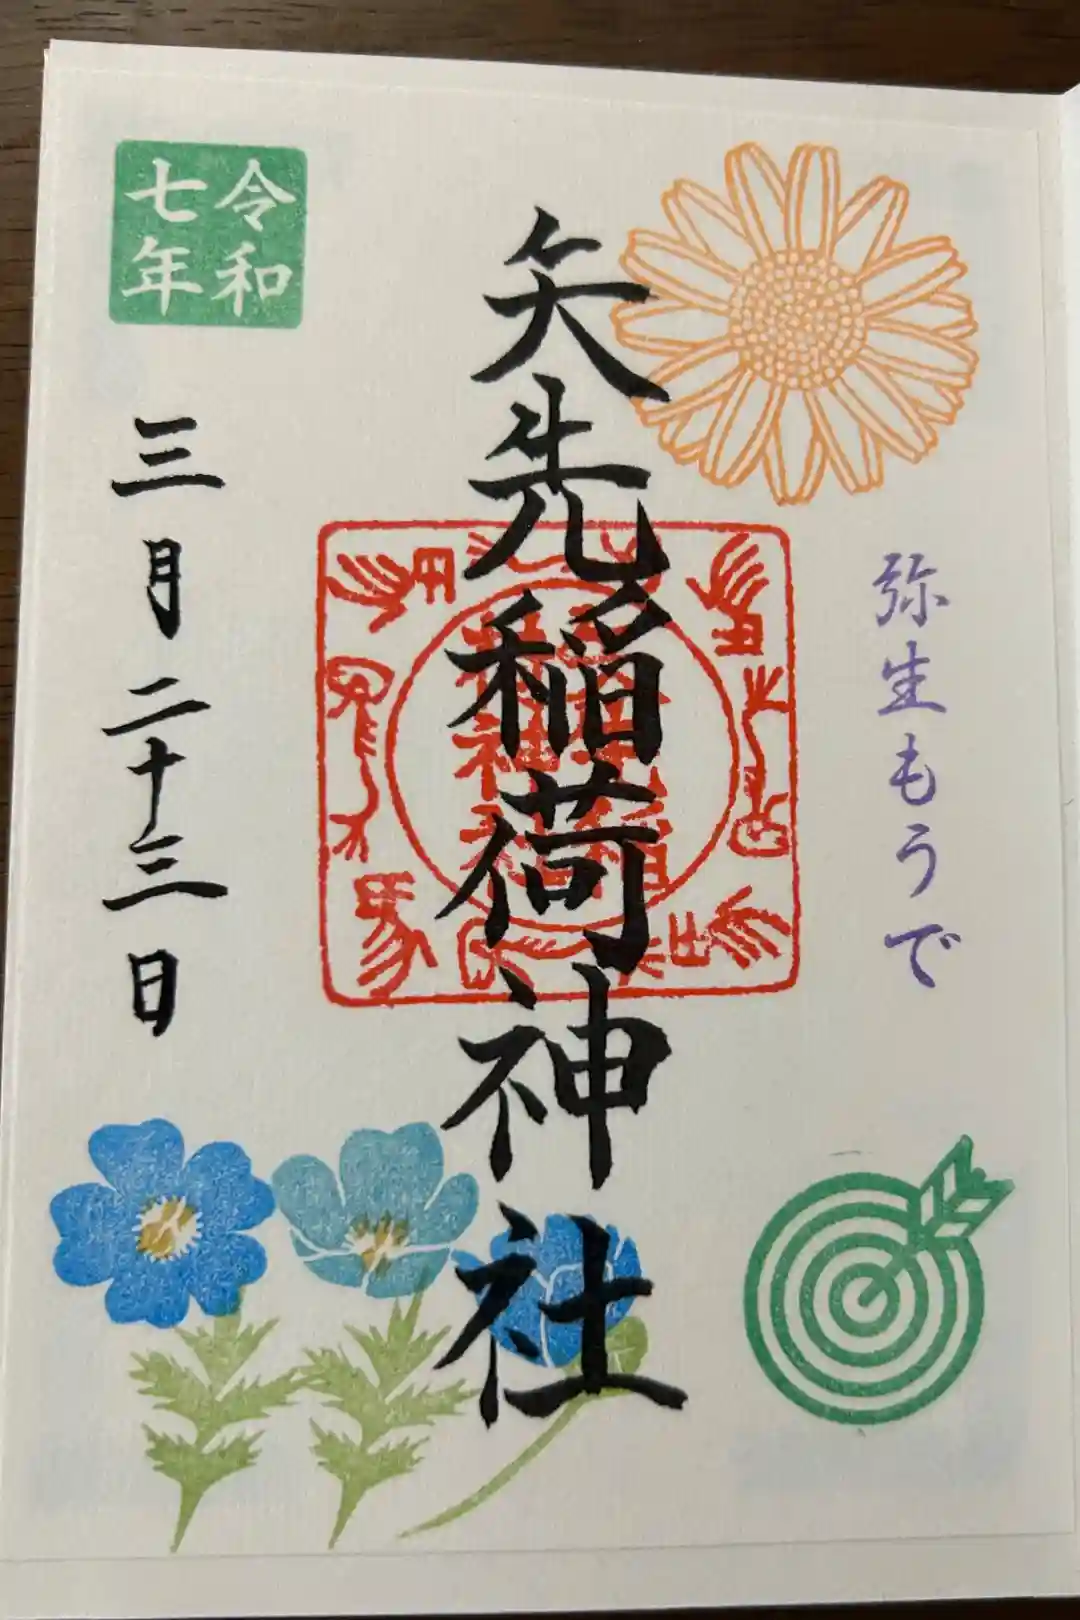 弥生もうで
矢先稲荷神社
令和
七年
三月二十三日